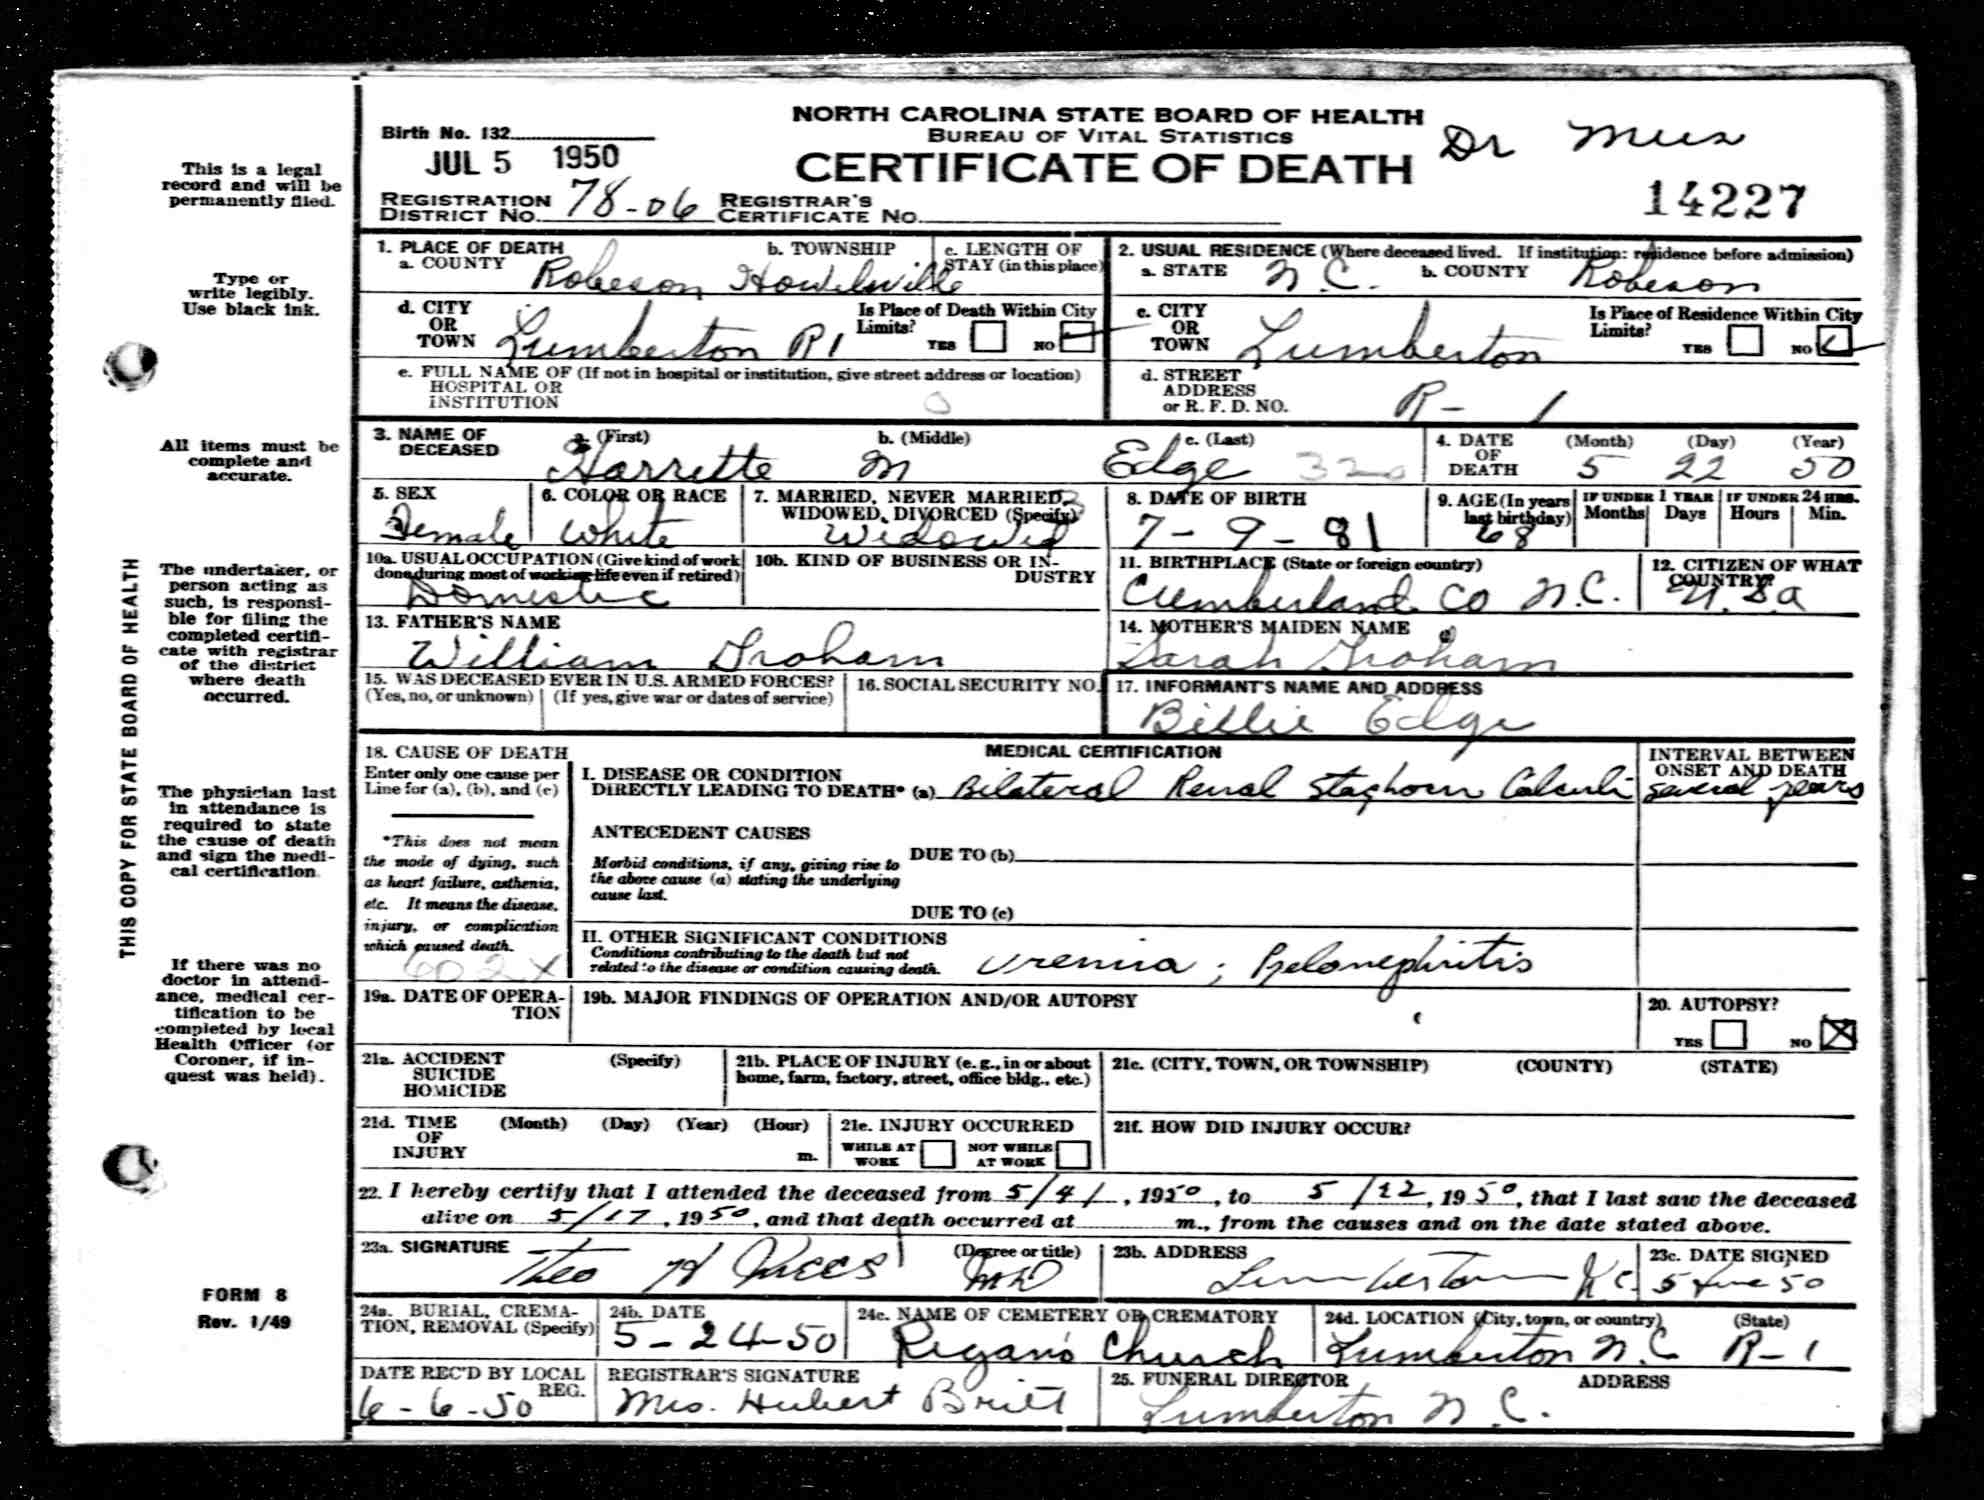 NORTH CAROLINA STATE BOARD OF HEALTH
BUREAU OF VITAL STATISTICS
CERTIFICATE OF DEATH
Dr
14227
Birth No. 132
JUL 5 1950
REGISTRATION DISTRICT No. 78-06 REGISTRAR'S CERTIFICATE No.
This is a legal
record and will be
permanently filed.
Type or
write legibly.
Use black ink.
All items must be
complete and
accurate.
The undertaker, or
person acting as
such, is responsi-
ble for filing the
completed certifi-
cate with registrar
of the district
where death
occurred.
The physician last
in attendance is
required to state
the cause of death
and sign the medi-
cal certification.
If there was no
doctor in attend-
ance, medical cer-
tification to be
completed by local
Health Officer (or
Coroner, if in-
quest was held).
FORM 8
Rev. 1/49
THIS COPY FOR STATE BOARD OF HEALTH
1. PLACE OF DEATH
a. COUNTY Robeson
b. TOWNSHIP Howellsville
c. LENGTH OF STAY (in this place)
2. USUAL RESIDENCE (Where deceased lived. If institution: residence before admission)
a. STATE N.C. b. COUNTY Robeson
d. CITY OR TOWN Lumberton R1
Is Place of Death Within City Limits? YES NO
c. CITY OR TOWN Lumberton
Is Place of Residence Within City Limits? YES NO
e. FULL NAME OF (If not in hospital or institution, give street address or location)
HOSPITAL OR
INSTITUTION
d. STREET ADDRESS or R. F. D. NO. R- 1
3. NAME OF DECEASED
a. (First) b. (Middle) c. (Last)
Harrette M Edge
4. DATE OF DEATH (Month) (Day) (Year)
5 22 50
5. SEX
Female
6. COLOR OR RACE
White
7. MARRIED, NEVER MARRIED, WIDOWED, DIVORCED (Specify)
Widowed
8. DATE OF BIRTH
7-9-81
9. AGE (In years last birthday) 68
IF UNDER 1 YEAR Months Days
IF UNDER 24 HRS. Hours Min.
10a. USUAL OCCUPATION (Give kind of work done during most of working life even if retired)
Domestic
10b. KIND OF BUSINESS OR INDUSTRY
11. BIRTHPLACE (State or foreign country)
Cumberland Co N.C.
12. CITIZEN OF WHAT COUNTRY?
U.S.a
13. FATHER'S NAME
William Groham
14. MOTHER'S MAIDEN NAME
Sarah Groham
15. WAS DECEASED EVER IN U.S. ARMED FORCES?
(Yes, no, or unknown) (If yes, give war or dates of service)
16. SOCIAL SECURITY NO.
17. INFORMANT'S NAME AND ADDRESS
Billie Edge
18. CAUSE OF DEATH
Enter only one cause per
Line for (a), (b), and (c)
*This does not mean
the mode of dying, such
as heart failure, asthenia,
etc. It means the disease,
injury, or complication
which caused death.
602X
MEDICAL CERTIFICATION
INTERVAL BETWEEN ONSET AND DEATH
I. DISEASE OR CONDITION
DIRECTLY LEADING TO DEATH* (a) Bilateral Renal Staghorn Calculi several years
ANTECEDENT CAUSES
Morbid conditions, if any, giving rise to
the above cause (a) stating the underlying
cause last.
DUE TO (b)
DUE TO (c)
II. OTHER SIGNIFICANT CONDITIONS
Conditions contributing to the death but not
related to the disease or condition causing death.
Uremia; Pyelonephritis
19a. DATE OF OPERATION
19b. MAJOR FINDINGS OF OPERATION AND/OR AUTOPSY
20. AUTOPSY?
YES NO
21a. ACCIDENT SUICIDE HOMICIDE (Specify)
21b. PLACE OF INJURY (e.g., in or about home, farm, factory, street, office bldg., etc.)
21c. (CITY, TOWN, OR TOWNSHIP) (COUNTY) (STATE)
21d. TIME OF INJURY (Month) (Day) (Year) (Hour) m.
21e. INJURY OCCURRED
WHILE AT WORK NOT WHILE AT WORK
21f. HOW DID INJURY OCCUR?
22. I hereby certify that I attended the deceased from 5/4/, 1950, to 5/22, 1950, that I last saw the deceased
alive on 5/17, 1950, and that death occurred at m., from the causes and on the date stated above.
23a. SIGNATURE (Degree or title)
Theo H MD
23b. ADDRESS
Lumberton N.C.
23c. DATE SIGNED
5 June 50
24a. BURIAL, CREMATION, REMOVAL (Specify)
24b. DATE
5-24-50
24c. NAME OF CEMETERY OR CREMATORY
Regan's Church
24d. LOCATION (City, town, or country) (State)
Lumberton N.C. R-1
DATE REC'D BY LOCAL REG.
6-6-50
REGISTRAR'S SIGNATURE
Mrs. Hubert Britt
25. FUNERAL DIRECTOR ADDRESS
Lumberton N.C.